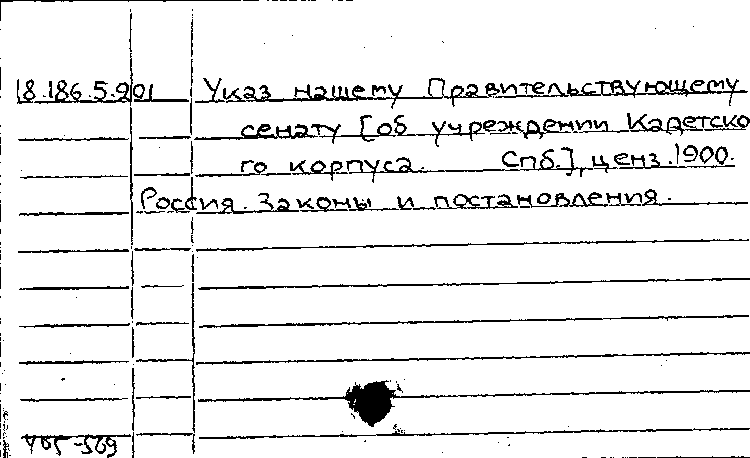 18.186.5.901 Указ нашему Правительствующему
сенату [об учреждении Кадетско
го корпуса. Спб.], ценз. 1900.
Россия. Законы и постановления.